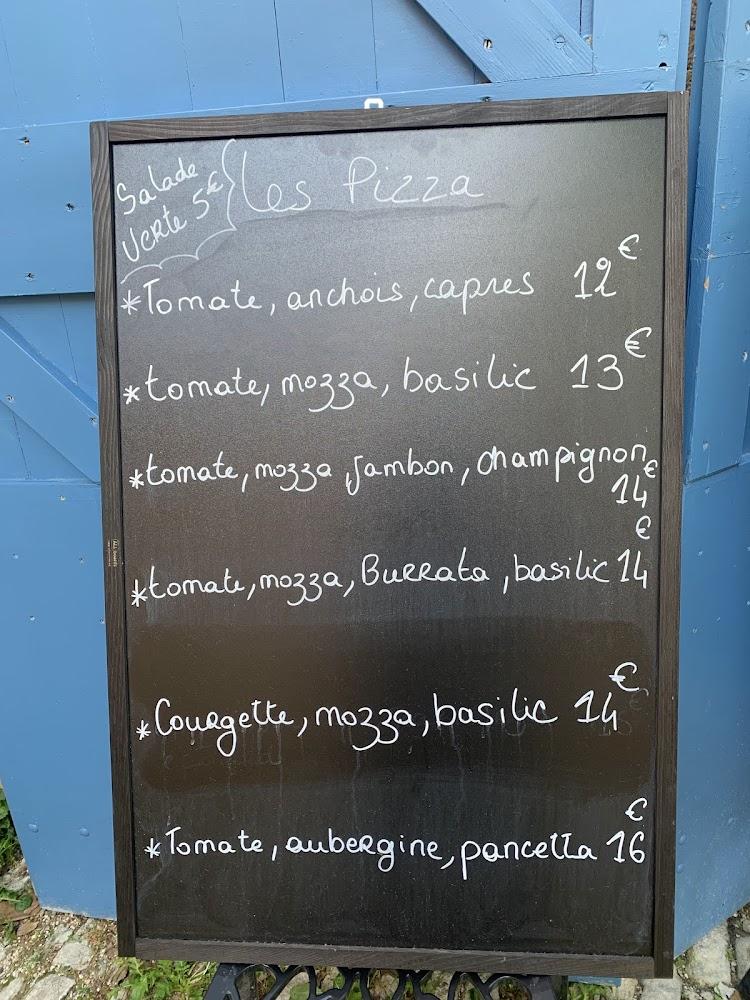 Salade
Verte 5€
Les Pizza
*Tomate, anchois, capres 12€
*tomate, mozza, basilic 13€
*tomate, mozza, Jambon, champignon
14€
*tomate, mozza, Burrata, basilic 14€
*Courgette, mozza, basilic 14€
*Tomate, aubergine, pancetta 16€